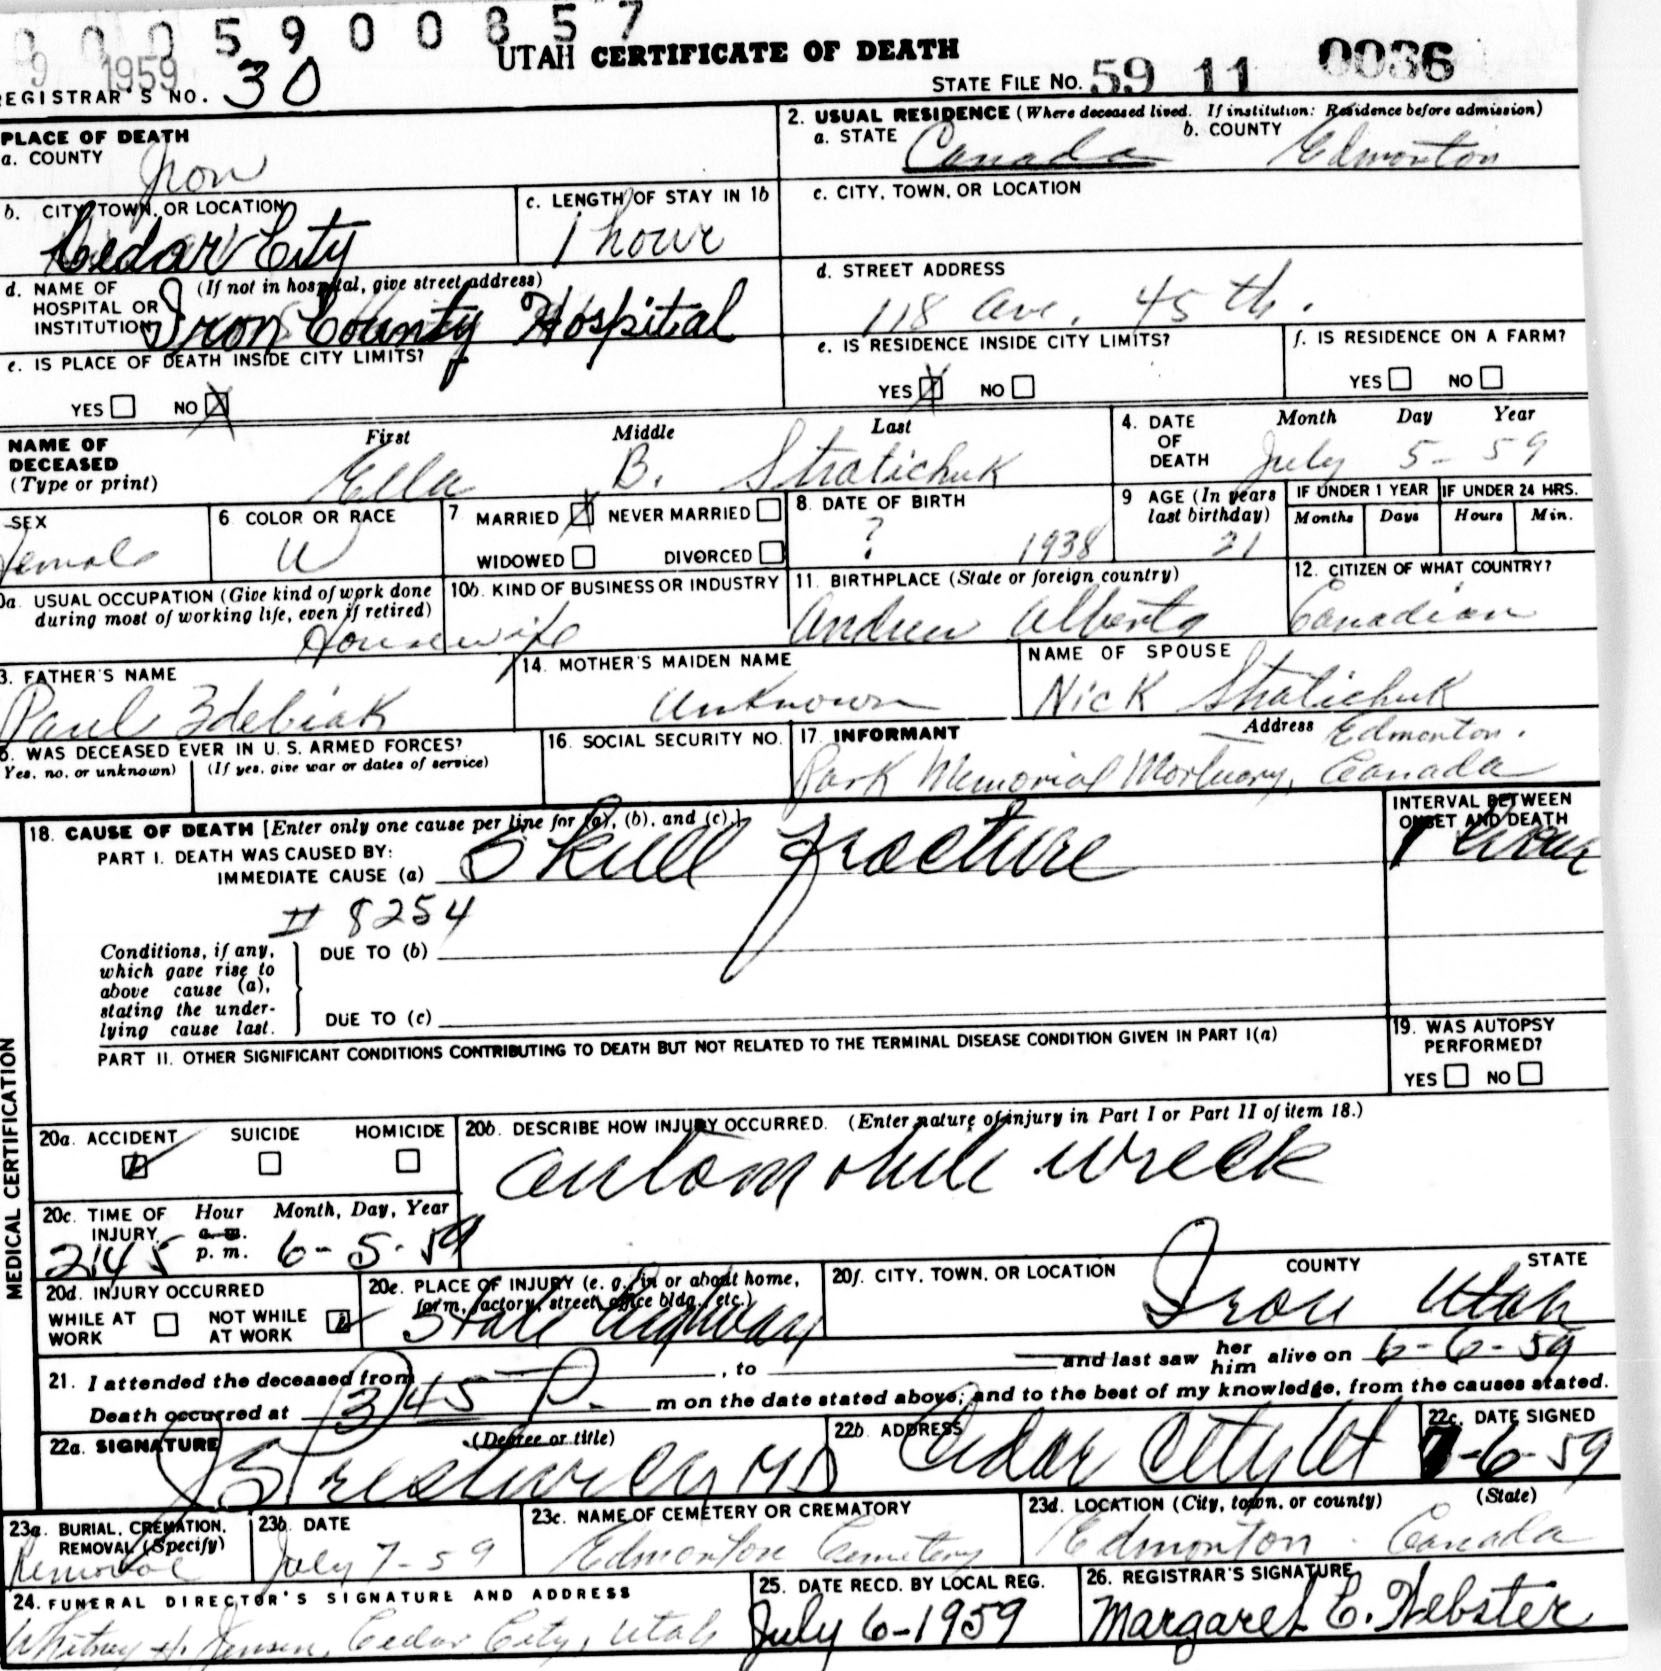 0 0 0 5 9 0 0 8 5 7
9 1959
UTAH CERTIFICATE OF DEATH
REGISTRAR'S NO. 30
STATE FILE NO. 59 11 0036
PLACE OF DEATH
a. COUNTY Iron
2. USUAL RESIDENCE (Where deceased lived. If institution: Residence before admission)
a. STATE Canada b. COUNTY Edmonton
b. CITY, TOWN, OR LOCATION Cedar City
c. LENGTH OF STAY IN 1b 1 hour
c. CITY, TOWN, OR LOCATION
d. NAME OF HOSPITAL OR INSTITUTION (If not in hospital, give street address) Iron County Hospital
d. STREET ADDRESS 118 Ave. 45 th.
e. IS PLACE OF DEATH INSIDE CITY LIMITS?
YES NO X
e. IS RESIDENCE INSIDE CITY LIMITS?
YES X NO
f. IS RESIDENCE ON A FARM?
YES NO
NAME OF DECEASED (Type or print)
First Middle Last
Ella B. Stratichuk
4. DATE OF DEATH Month Day Year
July 5-59
SEX Female
6 COLOR OR RACE W
7 MARRIED X NEVER MARRIED
WIDOWED DIVORCED
8. DATE OF BIRTH ? 1938
9 AGE (In years last birthday) 21
IF UNDER 1 YEAR Months Days
IF UNDER 24 HRS. Hours Min.
0a. USUAL OCCUPATION (Give kind of work done during most of working life, even if retired)
Housewife
10b. KIND OF BUSINESS OR INDUSTRY
11. BIRTHPLACE (State or foreign country)
Andrew Alberta
12. CITIZEN OF WHAT COUNTRY?
Canadian
3. FATHER'S NAME
Paul Zdebiak
14. MOTHER'S MAIDEN NAME
Unknown
NAME OF SPOUSE
Nick Stratichuk
5. WAS DECEASED EVER IN U.S. ARMED FORCES?
Yes, no, or unknown) (If yes, give war or dates of service)
16. SOCIAL SECURITY NO.
17. INFORMANT Address
Park Memorial Mortuary, Edmonton, Canada
MEDICAL CERTIFICATION
18. CAUSE OF DEATH [Enter only one cause per line for (a), (b), and (c).]
PART I. DEATH WAS CAUSED BY:
IMMEDIATE CAUSE (a) Skull fracture
INTERVAL BETWEEN ONSET AND DEATH
1 hour
# 8254
Conditions, if any, which gave rise to above cause (a), stating the underlying cause last.
DUE TO (b)
DUE TO (c)
PART II. OTHER SIGNIFICANT CONDITIONS CONTRIBUTING TO DEATH BUT NOT RELATED TO THE TERMINAL DISEASE CONDITION GIVEN IN PART I(a)
19. WAS AUTOPSY PERFORMED?
YES NO
20a. ACCIDENT SUICIDE HOMICIDE
20b. DESCRIBE HOW INJURY OCCURRED. (Enter nature of injury in Part I or Part II of item 18.)
automobile wreck
20c. TIME OF INJURY Hour a.m. p.m. Month, Day, Year
2:45 6-5-59
20d. INJURY OCCURRED
WHILE AT WORK NOT WHILE AT WORK
20e. PLACE OF INJURY (e. g., in or about home, farm, factory, street, office bldg., etc.)
State Highway
20f. CITY, TOWN, OR LOCATION COUNTY STATE
Iron Utah
21. I attended the deceased from , to and last saw her him alive on 6-6-59
Death occurred at 3:45 P. m on the date stated above; and to the best of my knowledge, from the causes stated.
22a. SIGNATURE (Degree or title)
MD
22b. ADDRESS
Cedar City Ut
22c. DATE SIGNED
7-6-59
23a. BURIAL, CREMATION, REMOVAL (Specify)
Removal
23b. DATE
July 7-59
23c. NAME OF CEMETERY OR CREMATORY
Edmonton Cemetery
23d. LOCATION (City, town, or county) (State)
Edmonton Canada
24. FUNERAL DIRECTOR'S SIGNATURE AND ADDRESS
Whitney H. Jensen, Cedar City, Utah
25. DATE RECD. BY LOCAL REG.
July 6-1959
26. REGISTRAR'S SIGNATURE
Margaret E. Webster